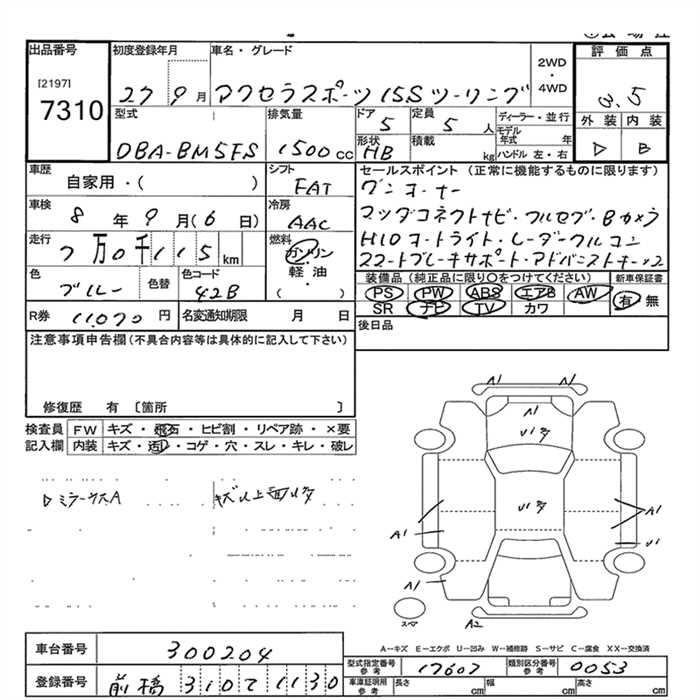 出品番号
[2197]
7310
初度登録年月
27 9 月
車名・グレード
アクセラスポーツ 15S ツーリング
2WD
・
4WD
評価点
3.5
型式
DBA-BM5FS
排気量
1500 cc
ドア
5
定員
5 人
形状
HB
積載
kg
ディーラー・並行
モデル年式 年
ハンドル 左・右
外装 内装
B
車歴
自家用・( )
シフト
FAT
車検
8 年 9 月 (6 日)
冷房
AAC
走行
7 万 0 千 1 1 5 km
燃料
ガソリン
・
軽油
・
( )
色
ブルー
色替
色コード
42B
R券 11,070 円
名変通知期限 月 日
セールスポイント (正常に機能するものに限ります)
ワンオーナー
マツダコネクトナビ・フルセグ・Bカメラ
HIDオートライト・レーダークルコン
スマートブレーキサポート・アドバンストキー×2
装備品 (純正品に限り〇をつけてください)
新車保証書
PS PW ABS エアB AW
有 無
SR ナビ TV カワ
後日品
注意事項申告欄 (不具合内容等は具体的に記入して下さい)
修復歴 有 〔箇所 〕
検査員記入欄
FW キズ・飛石・ヒビ割・リペア跡・×要
内装 キズ・汚レ・コゲ・穴・スレ・キレ・破レ
A1 A1
A1
A1
A1
U1
A1
A2
A-キズ E-エクボ U-凹み W-補修跡 S-サビ C-腐食 XX-交換済
車台番号
300204
登録番号
前橋 310 て 1130
型式指定番号
参考
17607
類別区分番号
参考
0053
車庫証明用
参考
長さ cm
幅 cm
高さ cm